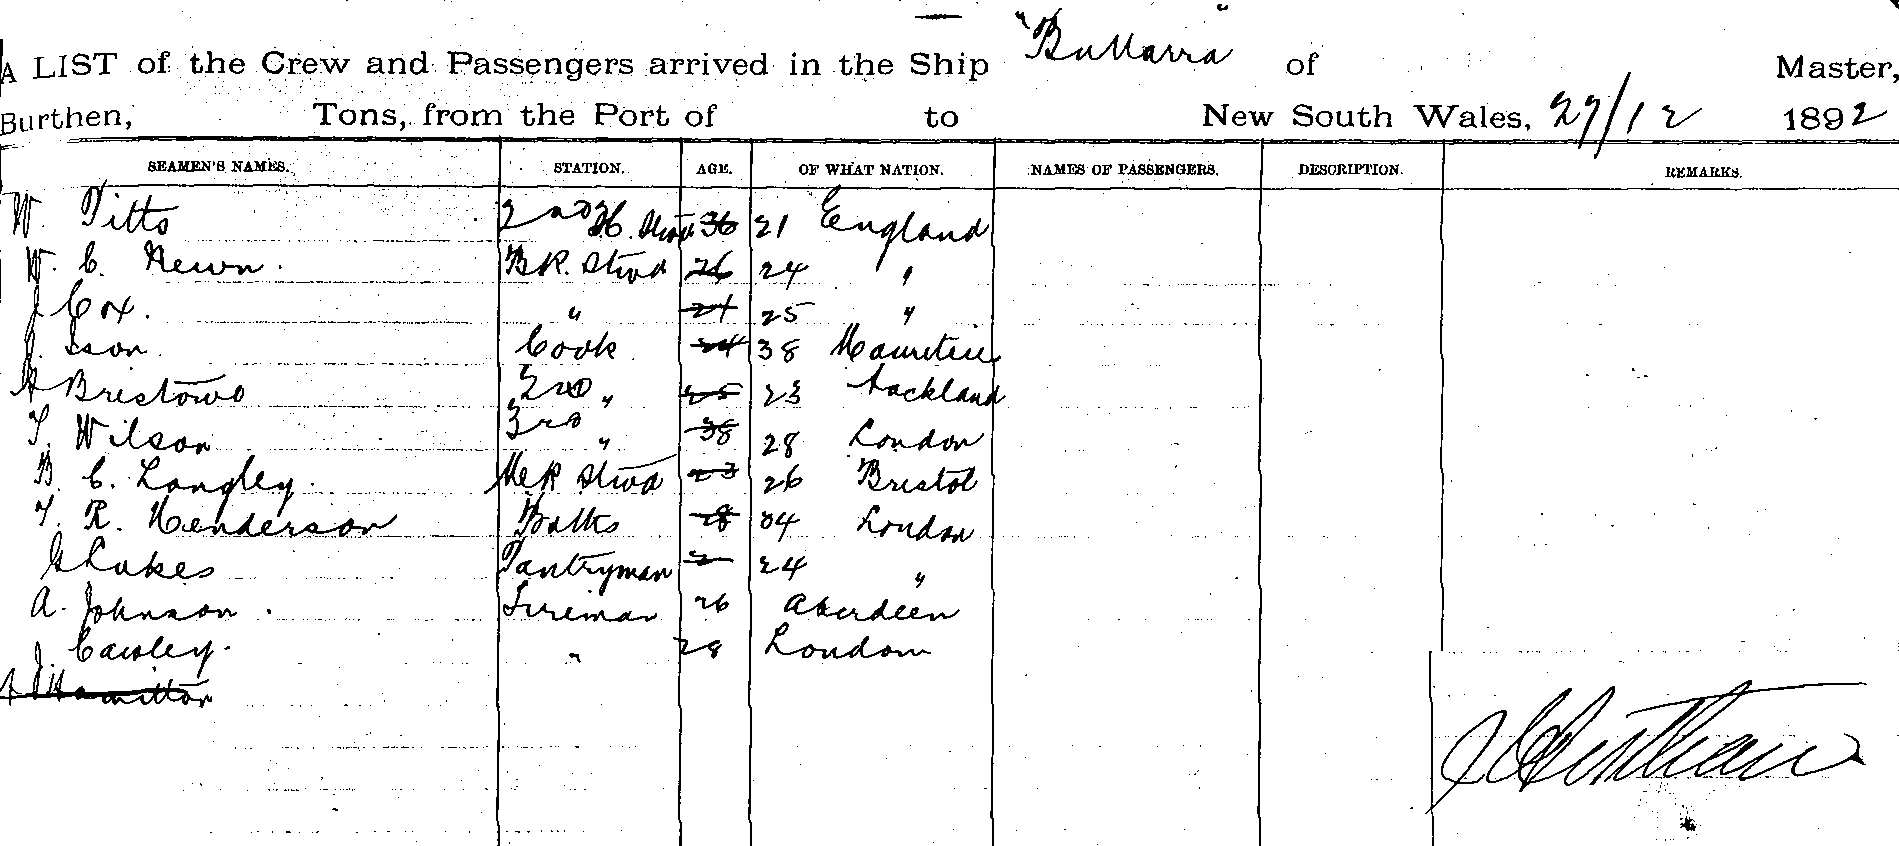 A LIST of the Crew and Passengers arrived in the Ship "Bullarra" of Master,
Burthen, Tons, from the Port of to New South Wales, 27/12 1892
SEAMEN'S NAMES. STATION. AGE. OF WHAT NATION. NAMES OF PASSENGERS. DESCRIPTION. REMARKS.
W. Pitts 2nd H. Stwd 36 21 England
W. C. Newn. BR. Stwd 26 24 "
J Cox. " 24 25 "
J. Cook 24 38 Mauritius
A Bristowe 2nd " 25 23 Auckland
T. Wilson 3rd " 38 28 London
B. C. Langley. MeR Stwd 23 26 Bristol
T. R. Henderson Baths 28 34 London
G Lukes Pantryman 24 "
A. Johnson. Fireman 26 Aberdeen
J. Cawley. " 28 London
Hamilton